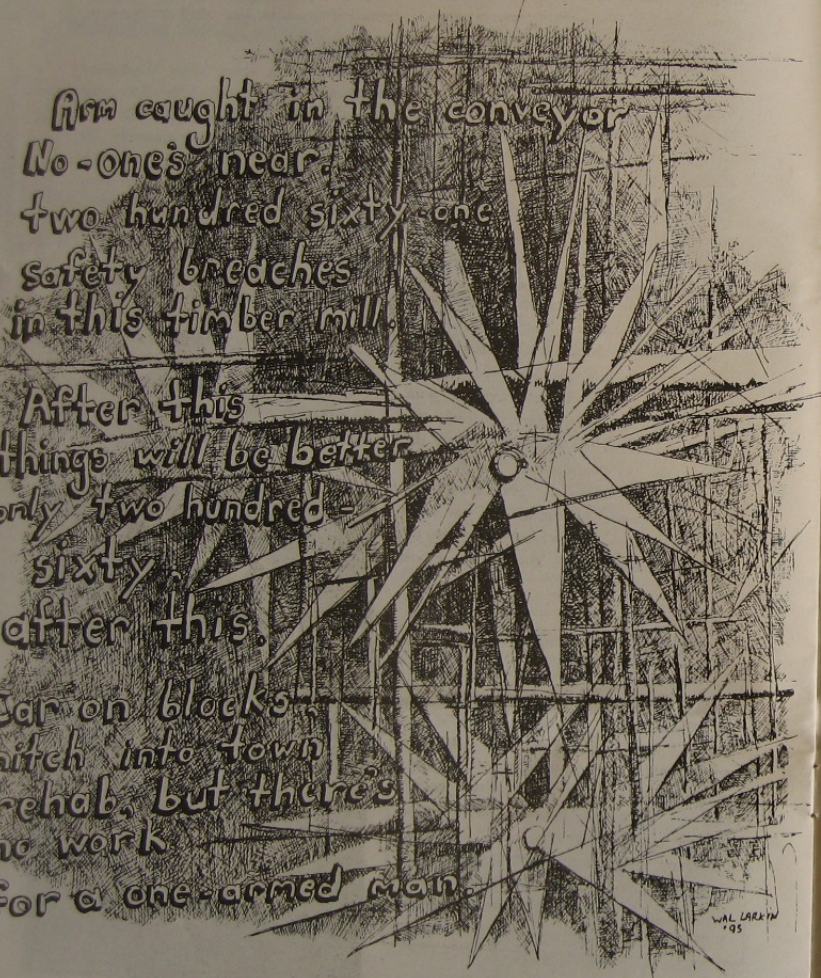 Arm caught in the conveyor
No-one's near.
two hundred sixty-one
safety breaches
in this timber mill.
After this
things will be better
only two hundred-
sixty.
after this.
Car on blocks.
hitch into town
rehab, but there's
no work
for a one-armed man.
WAL LARKIN
'95